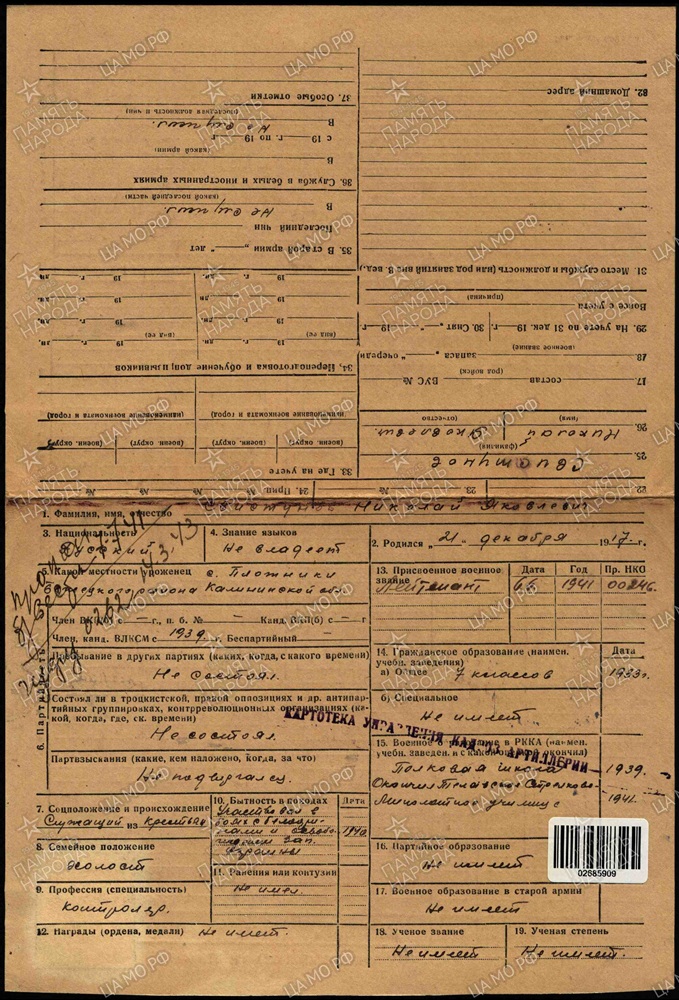 22. 23. № 24. Прип. №
25. Свистунов
(фамилия)
26. Николай Яковлевич.
(имя) (отчество)
17. состав ВУС №
(род войск)
18. запаса очереди
(военное звание)
29. На учете по 31 дек. 19 г. 30. Снят " " 19 г.
Вовсе с учета
(причина)
31. Место службы и должность (или род занятий вне в. вед.)
32. Домашний адрес
33. Где на учете
(военн. округ) (военн. округ) (военн. округ) (военн. округ)
(наименование военкомата и город) (наименование военкомата и город)
34. Переподготовка и обучение доприз­ывников
(вид ее) (вид ее)
19 г. дн. 19 г. дн.
19 г. дн. 19 г. дн.
19 г. дн. 19 г. дн.
19 г. дн. 19 г. дн.
35. В старой армии „ “ лет
Последний чин
В Не служил.
(какой последней части)
36. Служба в белых и иностранных армиях
В
(какой армии)
с 19 г. по 19 г.
В Не служил.
(последняя должность и чин)
37. Особые отметки
1. Фамилия, имя, отчество Свистунов Николай Яковлевич
2. Родился „21" декабря 1917 г.
3. Национальность
Русский
4. Знание языков
Не владеет
5. Какой местности уроженец с. Плотники
района Калининской обл.
6. Партийность
Член ВКП(б) с — г., п. б. № — Канд. ВКП(б) с — г.
Член, канд. ВЛКСМ с 1939 г. Беспартийный —
Пребывание в других партиях (каких, когда, с какого времени)
Не состоял.
Состоял ли в троцкистской, правой оппозициях и др. антипар-
тийных группировках, контрреволюционных организациях (ка-
кой, когда, где, ск. времени)
Не состоял.
Партвзыскания (какие, кем наложено, когда, за что)
Не подвергался.
7. Соцположение и происхождение
Служащий из крестьян
8. Семейное положение
холост
9. Профессия (специальность)
контролер.
10. Бытность в походах Дата
Участвовал в
1940
11. Ранения или контузии
Не имел.
12. Награды (ордена, медали) Не имеет.
13. Присвоенное военное звание Дата Год Пр. НКО
Лейтенант 6.6. 1941 00246.
14. Гражданское образование (наимен.
учебн. заведения) Дата
а) Общее 7 классов 1933г.
б) Специальное
Не имеет
15. Военное образование в РККА (наимен.
учебн. заведен. и с какой окончил)
Полковая школа 1939.
Окончил Стрелково-
Минометное училище 1941.
16. Партийное образование
Не имеет.
17. Военное образование в старой армии
Не имеет
18. Ученое звание
Не имеет
19. Ученая степень
Не имеет.
КАРТОТЕКА УПРАВЛЕНИЯ КАДРОВ АРТИЛЛЕРИИ
пропал
0262 14.3.43
02685909
ЦАМО.РФ
ПАМЯТЬ НАРОДА